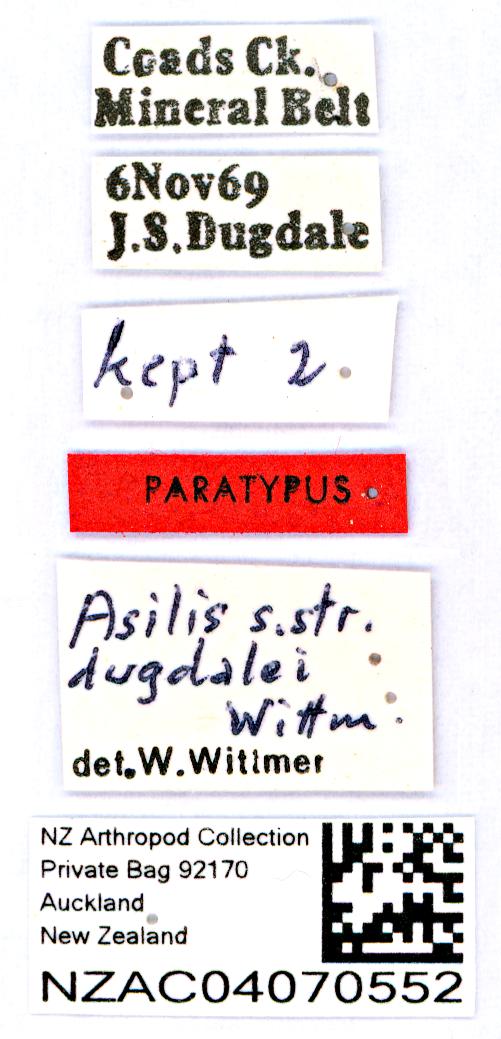 Coads Ck.
Mineral Belt
6Nov69
J.S.Dugdale
kept 2.
PARATYPUS
Asilis s.str.
dugdalei
Wittm.
det.W.Wittmer
NZ Arthropod Collection
Private Bag 92170
Auckland
New Zealand
NZAC04070552